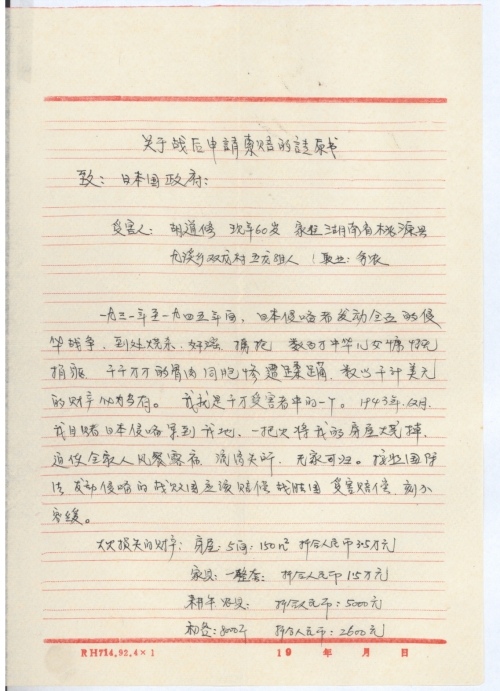 关于战后申請索赔的請愿书
致：日本国政府：
受害人：胡道修 现年60岁 家住湖南省桃源县
九溪乡双友村五友组人 职业：务农
一九三一年至一九四五年间，日本侵略者发动全面的侵
华战争，到处烧杀、奸淫、掳抢 数百万中华儿女慷慨
捐躯 千千万万的骨肉同胞惨遭蹂躏，数以千计美元
的财产化为乌有。我就是千万受害者中的一个。1943年12月，
我目睹日本侵略军到我地、一把火将我的房屋烧掉，
迫使全家人风餐露宿 流离失所，无家可归。按照国际
法 发动侵略的战败国应该赔偿战胜国受害赔偿，刻不
容缓。
损失的财产：房屋：5间：150m² 折合人民币35万元
家具：一整套：折合人民币15万元
农具：折合人民币：5000元
8000斤 折合人民币：2600元
RH714.92.4×1 19 年 月 日